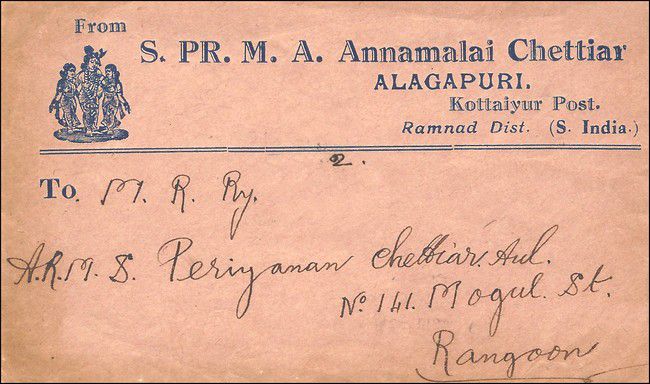 From
S. PR. M. A. Annamalai Chettiar
ALAGAPURI.
Kottaiyur Post.
Ramnad Dist. (S. India.)
2.
To. M. R. Ry.
A.R.M. S. Periyanan Chettiar. Avl.
No 141. Mogul. St.
Rangoon